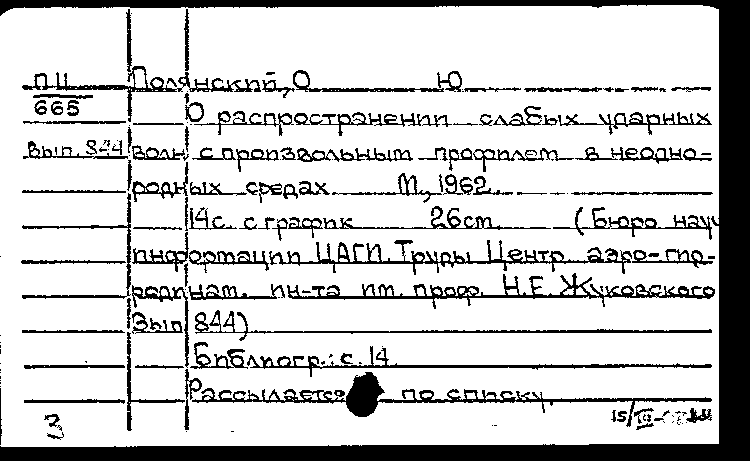 П II Полянский, О Ю
665
О распространении слабых ударных
Вып. 844 волн с произвольным профилем в неодно-
родных средах М., 1962.
14с. с график 26см. (Бюро науч
информации ЦАГИ. Труды Центр. аэро-гид-
родинам. ин-та им. проф. Н.Е. Жуковского
Вып 844)
Библиогр.: с. 14
Рассылается по списку.
3 15/III-